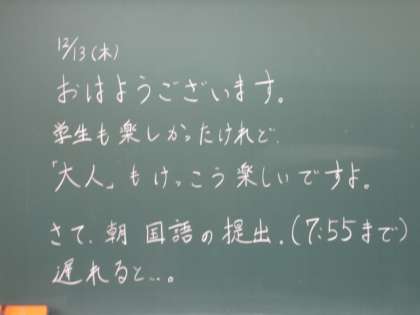 12/13(木)
おはようございます。
学生も楽しかったけれど、
「大人」もけっこう楽しいですよ。
さて、朝国語の提出。(7:55まで)
遅れると…。